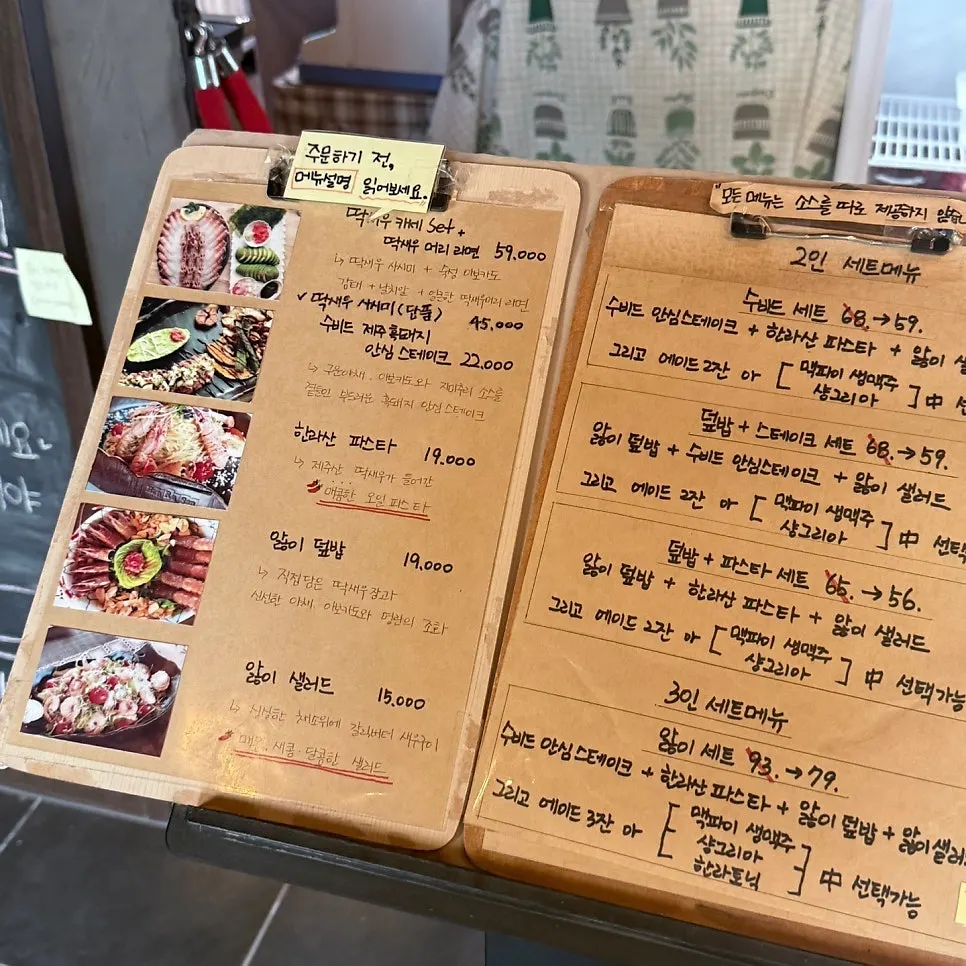 주문하기 전,
메뉴설명 읽어보세요.
딱새우 카세 Set +
딱새우 머리 라면 59,000
↳ 딱새우 사시미 + 숙성 아보카도
감태 + 날치알 + 얼큰한 딱새우머리 라면
✓ 딱새우 사시미(단품) 45,000
수비드 제주 흑돼지
안심 스테이크 22,000
↳ 구운야채, 아보카도와 치미추리 소스를
곁들인 부드러운 흑돼지 안심 스테이크
한라산 파스타 19,000
↳ 제주산 딱새우가 들어간
매콤한 오일 파스타
앓이 덮밥 19,000
↳ 직접담은 딱새우장과
신선한 야채, 아보카도와 명란의 조화
앓이 샐러드 15,000
↳ 싱싱한 채소위에 갈릭버터 새우구이
매콤, 새콤, 달콤한 샐러드
"모든 메뉴는 소스를 따로 제공하지 않습
2인 세트메뉴
수비드 세트 68. → 59.
수비드 안심스테이크 + 한라산 파스타 + 앓이 샐
그리고 에이드 2잔 or [ 맥파이 생맥주
샹그리아 ] 中 선
덮밥 + 스테이크 세트 68. → 59.
앓이 덮밥 + 수비드 안심스테이크 + 앓이 샐러드
그리고 에이드 2잔 or [ 맥파이 생맥주
샹그리아 ] 中 선택
덮밥 + 파스타 세트 65. → 56.
앓이 덮밥 + 한라산 파스타 + 앓이 샐러드
그리고 에이드 2잔 or [ 맥파이 생맥주
샹그리아 ] 中 선택가능
3인 세트메뉴
앓이 세트 93. → 79.
수비드 안심스테이크 + 한라산 파스타 + 앓이 덮밥 + 앓이샐러
그리고 에이드 3잔 or [ 맥파이 생맥주
샹그리아
한라토닉 ] 中 선택가능